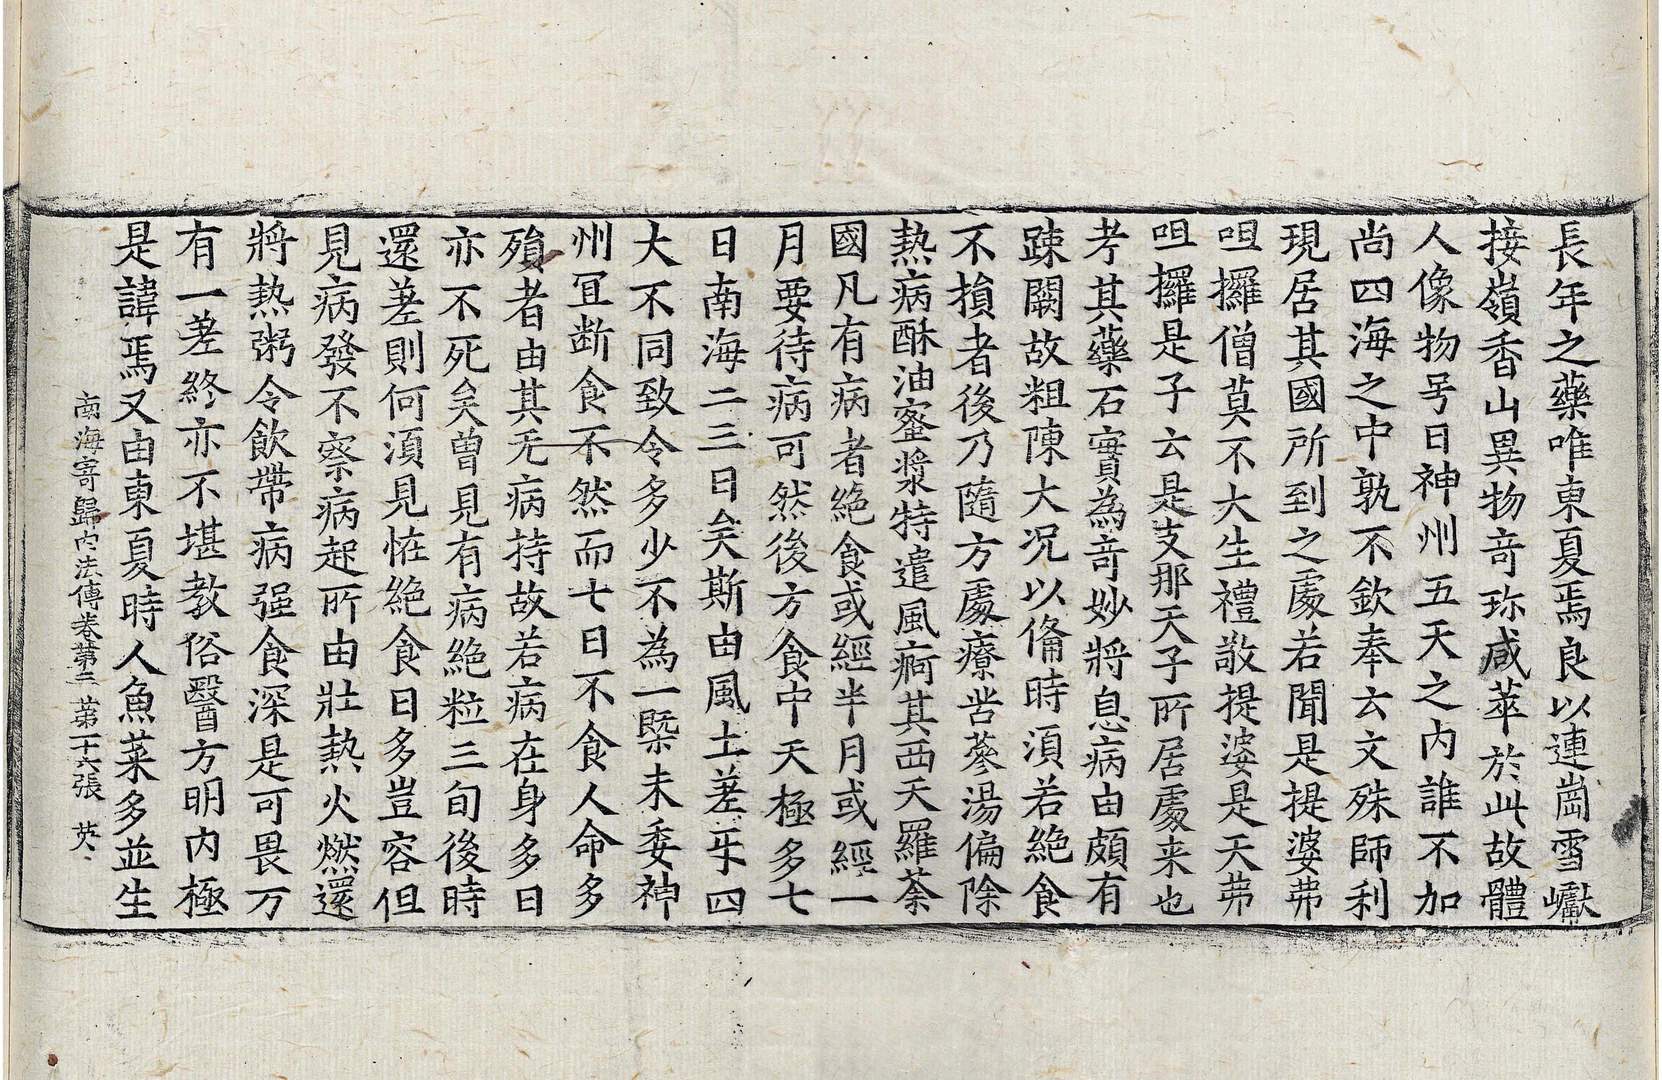 長年之藥唯東夏焉良以連崗雪巘
接嶺香山異物奇珎咸萃於此故體
人像物号曰神州五天之内誰不加
尚四海之中孰不欽奉云文殊師利
現居其國所到之處若聞是提婆弗
呾攞僧莫不大生禮敬提婆是天弗
呾攞是子云是支那天子所居處来也
考其藥石實為奇妙將息病由頗有
踈闕故粗陳大況以俻時湏若絶食
不損者後乃隨方處療苦蔘湯偏除
熱病酥油蜜漿特遣風痾其西天羅荼
國凡有病者絶食或經半月或經一
月要待病可然後方食中天極多七
日南海二三日矣斯由風土差㸦四
大不同致令多少不為一槩未委神
州冝断食不然而七日不食人命多
殞者由其无病持故若病在身多日
亦不死矣曽見有病絶粒三旬後時
還差則何湏見恠絶食日多豈容但
見病發不察病起所由壯熱火燃還
將熱粥令飲帶病强食深是可畏万
有一差終亦不堪教俗醫方明内極
是諱焉又由東夏時人魚菜多並生
南海寄歸内法傳卷第三 第二十六張 英